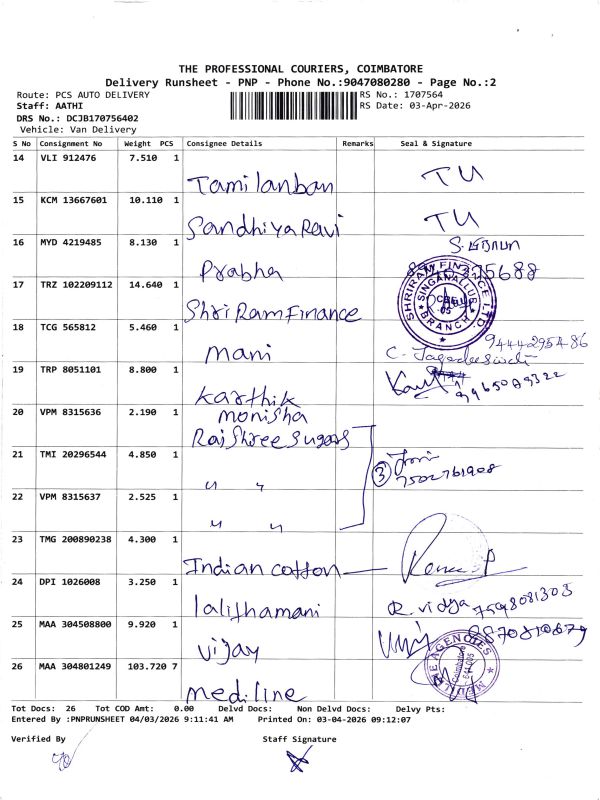 THE PROFESSIONAL COURIERS, COIMBATORE
Delivery Runsheet - PNP - Phone No.:9047080280 - Page No.:2
Route: PCS AUTO DELIVERY RS No.: 1707564
Staff: AATHI RS Date: 03-Apr-2026
DRS No.: DCJB170756402
Vehicle: Van Delivery
S No Consignment No Weight PCS Consignee Details Remarks Seal & Signature
14 VLI 912476 7.510 1
Tamilanban TU
15 KCM 13667601 10.110 1
Sandhiya Ravi TU
16 MYD 4219485 8.130 1
Prabha
17 TRZ 102209112 14.640 1
Shri Ram Finance
SHRIRAM FINANCE LTD. SINGANALLUR BRANCH
18 TCG 565812 5.460 1
mani 9444295486
19 TRP 8051101 8.800 1
Karthik
20 VPM 8315636 2.190 1
monisha
Rajshree sugars
21 TMI 20296544 4.850 1
" " 3 7502761908
22 VPM 8315637 2.525 1
" "
23 TMG 200890238 4.300 1
Indian cotton
24 DPI 1026008 3.250 1
lalithamani R. vidya
25 MAA 304508800 9.920 1
vijay
26 MAA 304801249 103.720 7
mediline
AGENCIES Coimbatore
Tot Docs: 26 Tot COD Amt: 0.00 Delvd Docs: Non Delvd Docs: Delvy Pts:
Entered By :PNPRUNSHEET 04/03/2026 9:11:41 AM Printed On: 03-04-2026 09:12:07
Verified By Staff Signature